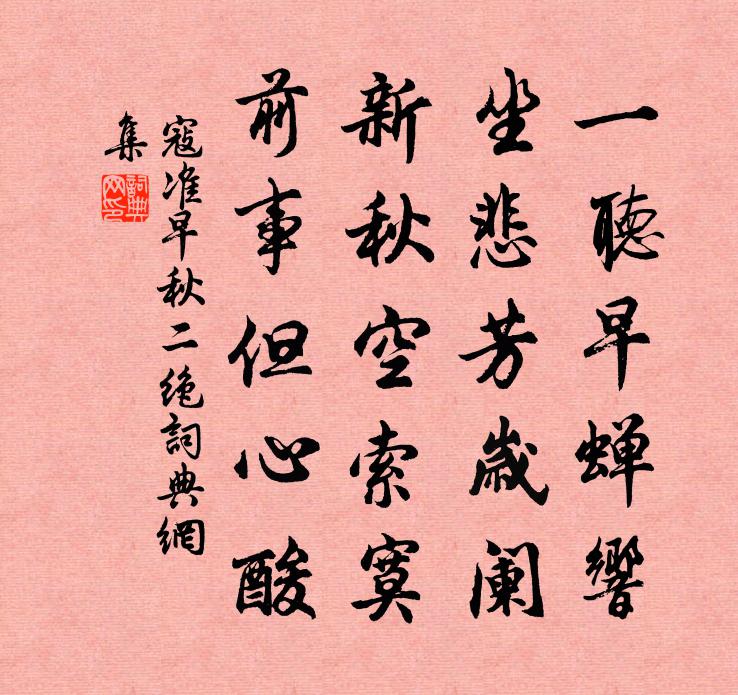 一聽早蝉響
坐悲芳歲阑
新秋空索寞
前事但心酸
寇准早秋二绝詞典網
集
詞典
网印